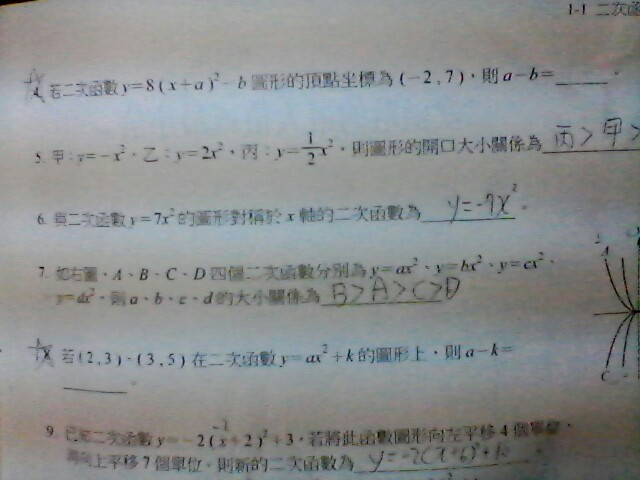 1-1 二次函
4. 若二次函數 y=8(x+a)²-b 圖形的頂點坐標為 (-2,7),則 a-b=______。
5. 甲:y=-x²、乙:y=2x²、丙:y=1/2x²,則圖形的開口大小關係為 丙>甲>
6. 與二次函數 y=7x² 的圖形對稱於 x 軸的二次函數為 y=-7x²。
7. 如右圖,A、B、C、D 四個二次函數分別為 y=ax²、y=bx²、y=cx²、
y=dx²,則 a、b、c、d 的大小關係為 B>A>C>D
A
C
8. 若 (2,3)、(3,5) 在二次函數 y=ax²+k 的圖形上,則 a-k=
______。
9. 已知二次函數 y=-2(x+2)²+3,若將此函數圖形向左平移 4 個單位,
再向上平移 7 個單位,則新的二次函數為 y=-2(x+6)²+10